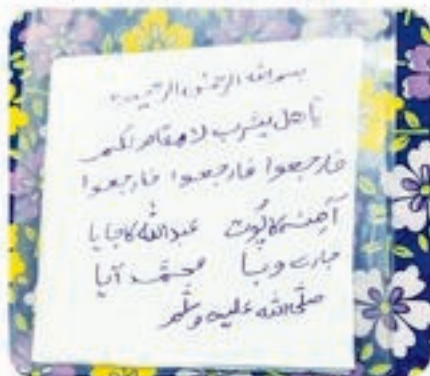 بسم اللہ الرحمٰن الرحیم
یاھل یثرب لا مقام لکم
فارجعوا فارجعوا فارجعوا
آمنہ کا پُوت عبداللہ کا جایا
جارے وبا محمّد آیا
صلّی اللہ علیہ وسلّم